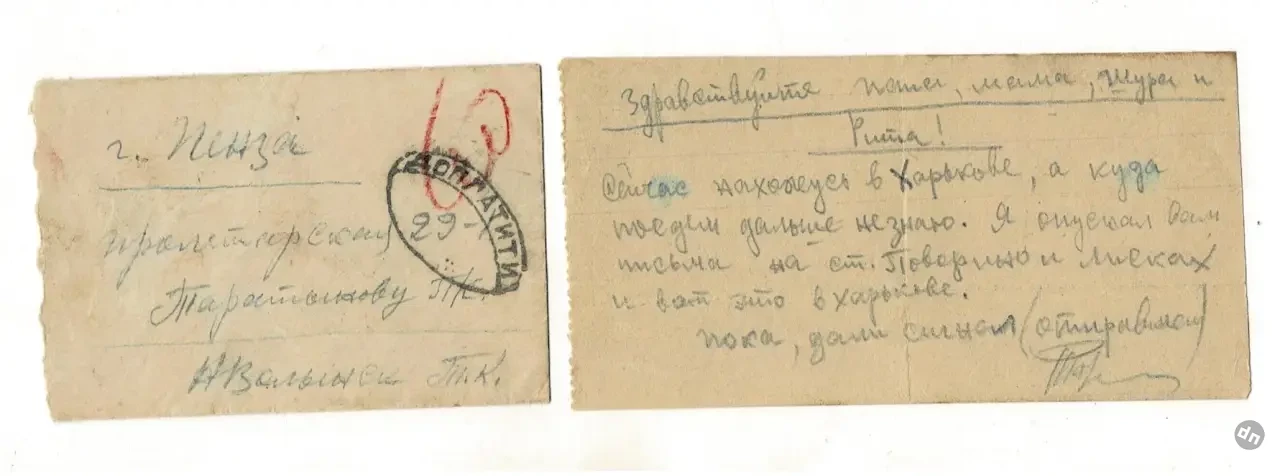 г. Пенза
пролетарская
Таратынову Т.К.
Н Волынск Т.К.
ДОПЛАТИТИ
29-
Здравствуйте папа, мама, Шура и
Рита!
Сейчас нахожусь в Харькове, а куда
поедим дальше незнаю. Я опускал Вам
письма на ст. Поворино и Лисках
и вот это в Харькове.
пока, дали сигнал (отправился)
dn